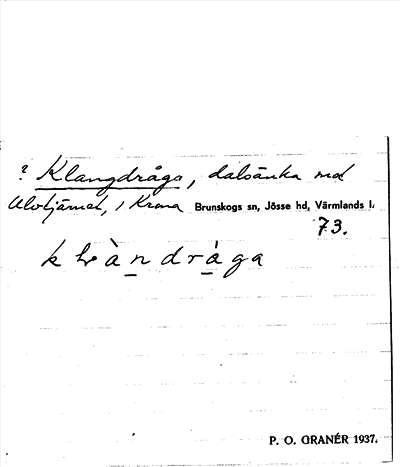 ? Klangdråga, dalsänka vid
Ulvtjärnet, i Krona Brunskogs sn, Jösse hd, Värmlands l.
73.
P. O. GRANÉR 1937.